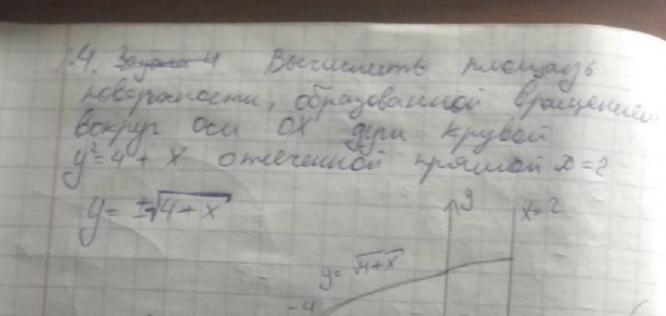 4. Задача 4 Вычислить площадь
поверхности, образованной вращением
вокруг оси OX дуги кривой
y² = 4 + x отсеченной прямой x = 2
y = ±√4+x
y
x=2
y = √4+x
-4